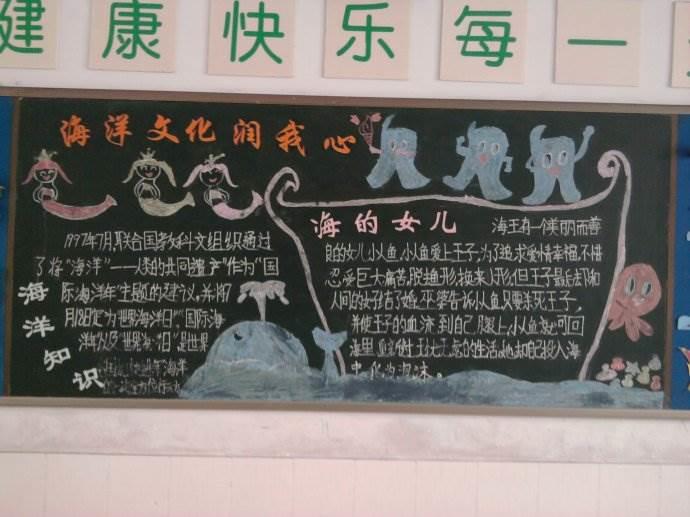 健康快乐每一
海洋文化润我心
1997年7月,联合国教科文组织通过
了将“海洋”——人类的共同遗产”作为“国
际海洋年”主题的建议,并将
月18日定为“世界海洋日”。国际海
洋年以及“世界海洋日”是世界
海洋知识
海的女儿
海王有一个美丽而善
良的女儿小人鱼,小人鱼爱上王子,为了追求爱情幸福,不惜
忍受巨大痛苦,脱鱼形,换来人形,但王子最后却和
人间的女子结了婚,巫婆告诉小人鱼只要杀死王子,
并使王子的血流到自己腿上,小人鱼就可回
海里,重新过上无忧无虑的生活,她却自己投入海
中,化为泡沫。